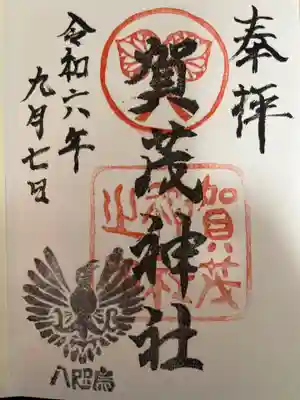 奉拝
賀茂神社
賀茂
神社
之印
令和六年
九月七日
八咫烏